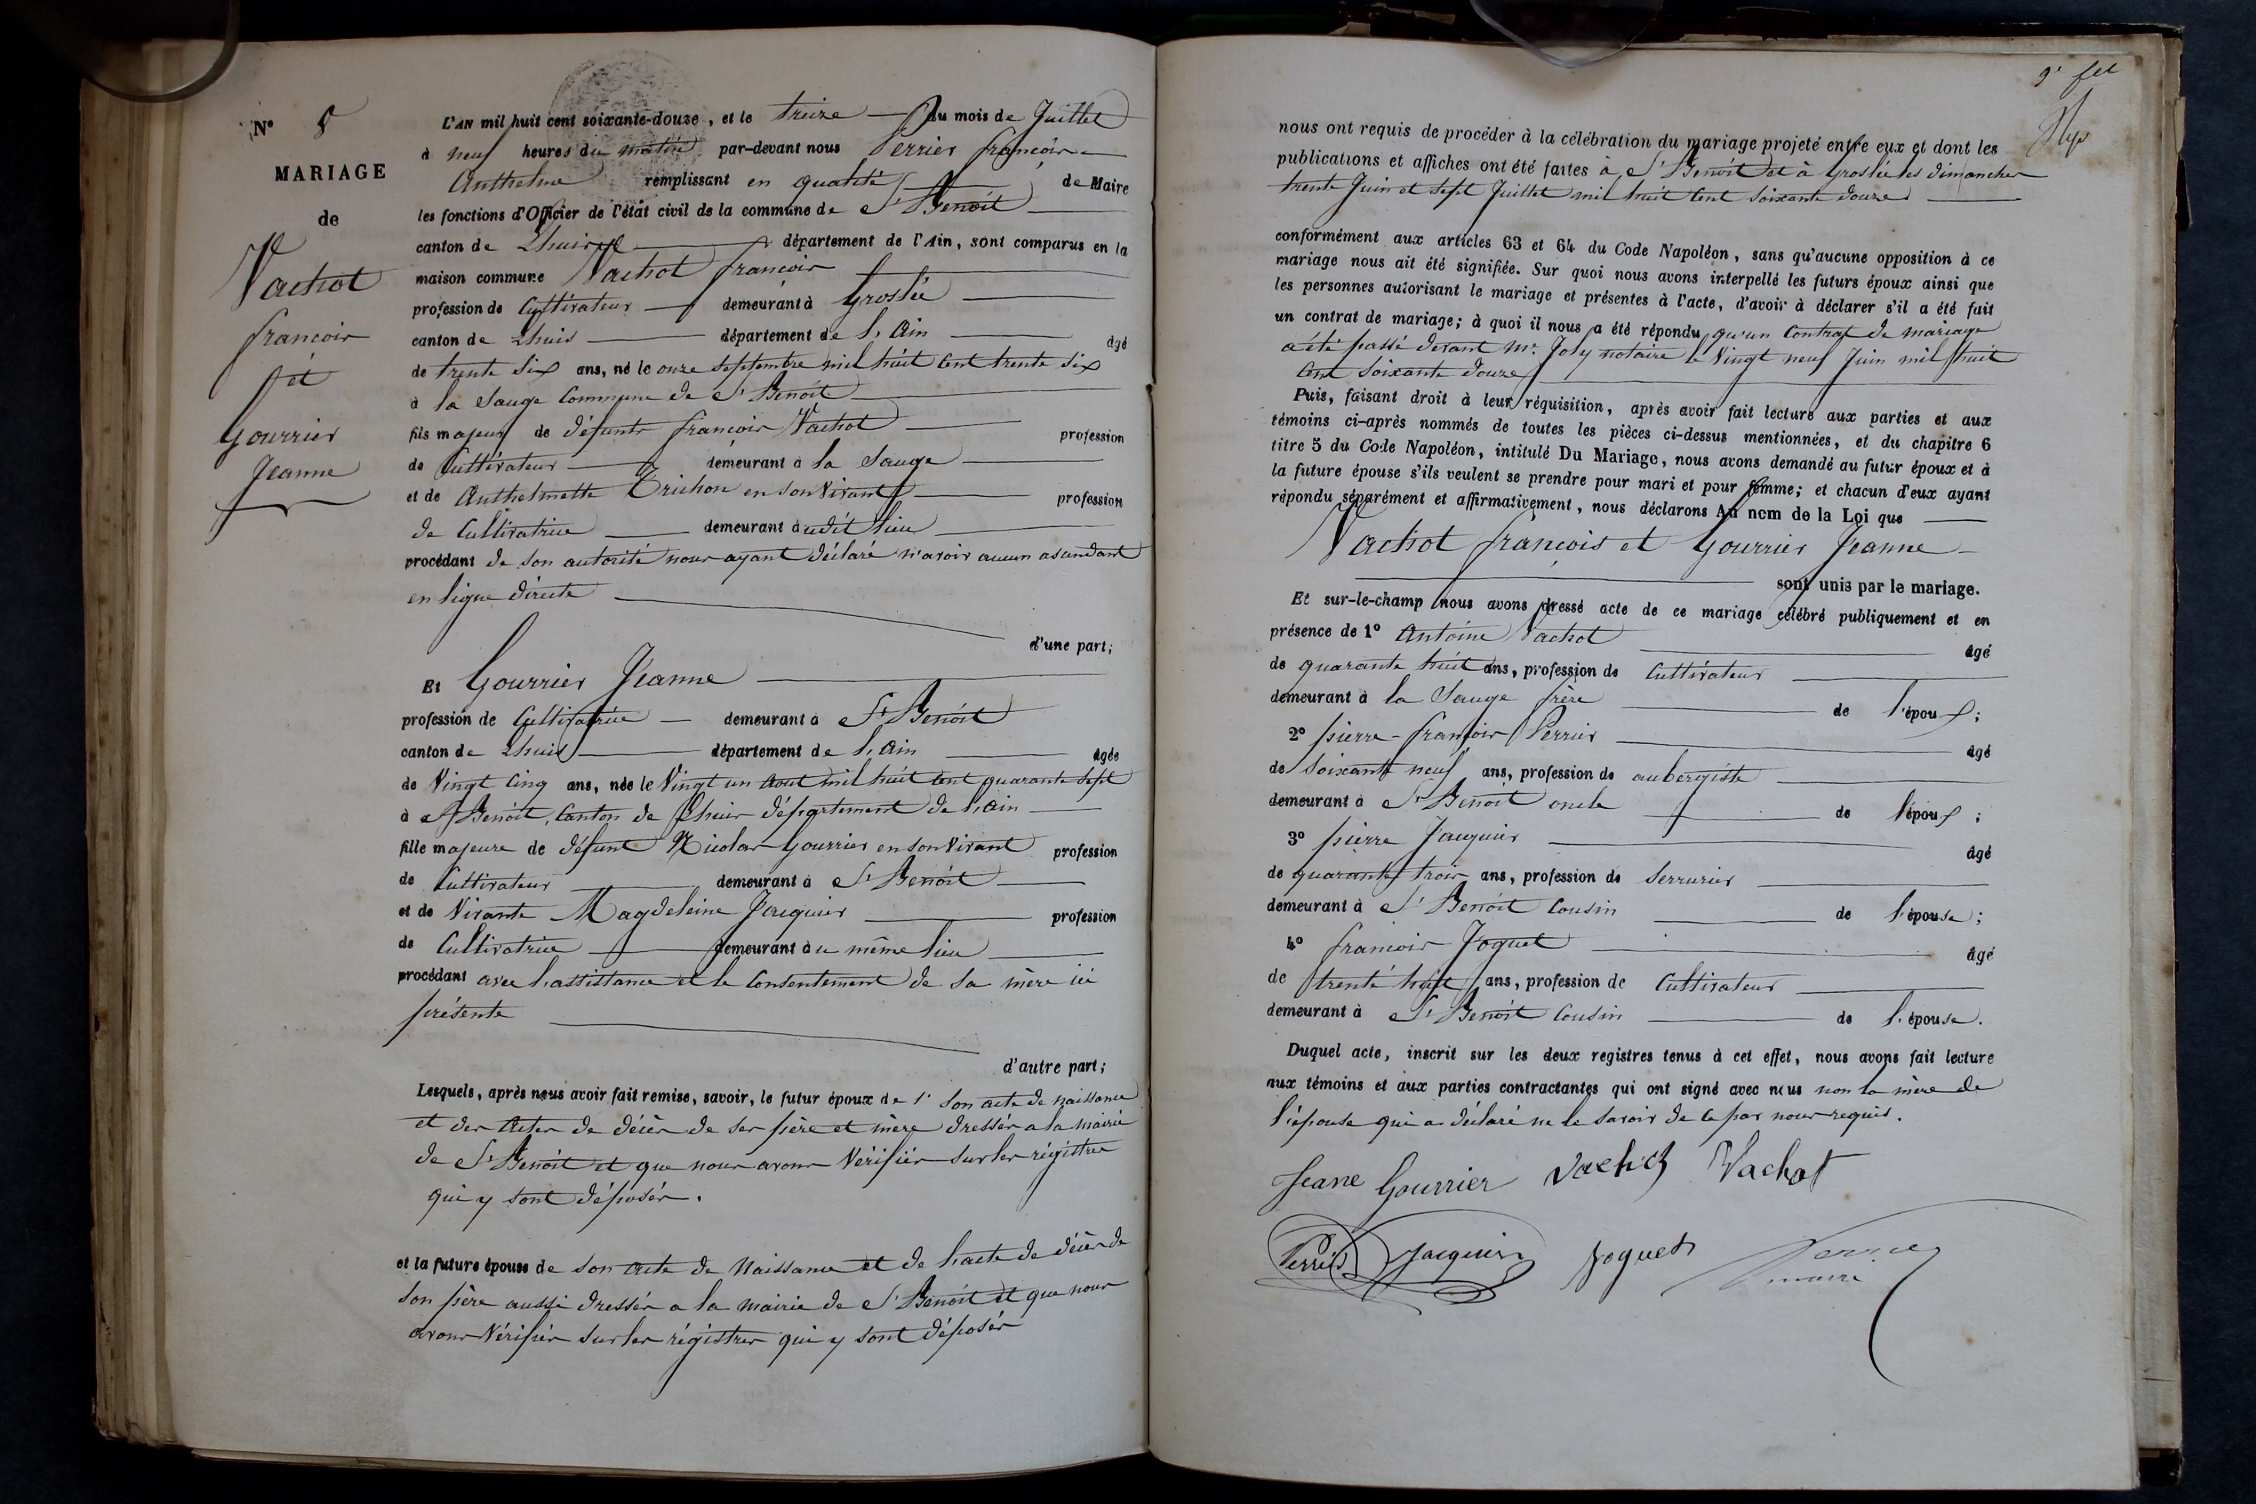 N° 5
MARIAGE
de
Vachot
françois
et
Gourrier
Jeanne
L'AN mil huit cent soixante-douze, et le treize du mois de Juillet
à neuf heures du matin par-devant nous Perrier françois
Anthelme remplissant en qualité de Maire
les fonctions d'Officier de l'état civil de la commune de St Benoit
canton de Lhuis département de l'Ain, sont comparus en la
maison commune Vachot françois
profession de Cultivateur demeurant à Groslée
canton de Lhuis département de l'Ain âgé
de trente six ans, né le onze septembre mil huit cent trente six
à la Sauge Commune de St Benoit
fils majeur de défunts françois Vachot profession
de Cultivateur demeurant à la Sauge
et de Anthelmette Trichon en son vivant profession
de Cultivatrice demeurant audit lieu
procédant de son autorité nous ayant déclaré n'avoir aucun ascendant
en ligne directe
d'une part;
Et Gourrier Jeanne
profession de Cultivatrice demeurant à St Benoit
canton de Lhuis département de l'Ain âgée
de Vingt Cinq ans, née le Vingt un Aout mil huit cent quarante sept
à St Benoit, Canton de Lhuis département de l'ain
fille majeure de défunt Nicolas Gourrier en son vivant profession
de Cultivateur demeurant à St Benoit
et de Vivante Magdeleine Jacquier profession
de Cultivatrice demeurant au même lieu
procédant avec l'assistance et le Consentement de sa mère ici
présente
d'autre part;
Lesquels, après nous avoir fait remise, savoir, le futur époux de 1° son acte de naissance
et des Actes de décès de ses père et mère dressés a la mairie
de St Benoit et que nous avons Vérifiés sur les régistres
qui y sont déposés.
et la future épouse de son acte de Naissance et de l'acte de décès de
son père aussi dressés a la mairie de St Benoit et que nous
avons Vérifiés sur les régistres qui y sont déposés
9e fet
nous ont requis de procéder à la célébration du mariage projeté entre eux et dont les
publications et affiches ont été faites à St Benoit et à Groslée les dimanches
trente Juin et sept Juillet mil huit Cent soixante douze
conformément aux articles 63 et 64 du Code Napoléon, sans qu'aucune opposition à ce
mariage nous ait été signifiée. Sur quoi nous avons interpellé les futurs époux ainsi que
les personnes autorisant le mariage et présentes à l'acte, d'avoir à déclarer s'il a été fait
un contrat de mariage; à quoi il nous a été répondu qu'un Contrat de mariage
a été passé devant Mr. Joly notaire le Vingt neuf Juin mil huit
Cent soixante douze
Puis, faisant droit à leur réquisition, après avoir fait lecture aux parties et aux
témoins ci-après nommés de toutes les pièces ci-dessus mentionnées, et du chapitre 6
titre 5 du Code Napoléon, intitulé Du Mariage, nous avons demandé au futur époux et à
la future épouse s'ils veulent se prendre pour mari et pour femme; et chacun d'eux ayant
répondu séparément et affirmativement, nous déclarons Au nom de la Loi que
Vachot françois et Gourrier Jeanne
sont unis par le mariage.
Et sur-le-champ nous avons dressé acte de ce mariage célébré publiquement et en
présence de 1° Antoine Vachot âgé
de quarante huit ans, profession de Cultivateur
demeurant à la Sauge frère de l'époux;
2° pierre-françois Perrier âgé
de soixante neuf ans, profession de aubergiste
demeurant à St Benoit oncle de l'époux;
3° pierre Jacquier âgé
de quarante trois ans, profession de serrurier
demeurant à St Benoit Cousin de l'épouse;
4° françois Joguet âgé
de trente huit ans, profession de Cultivateur
demeurant à St Benoit Cousin de l'épouse.
Duquel acte, inscrit sur les deux registres tenus à cet effet, nous avons fait lecture
aux témoins et aux parties contractantes qui ont signé avec nous non la mère de
l'épouse qui a déclaré ne le savoir de ce par nous requis.
Jeane Gourrier Vachot Vachot
Perrier Jacquier Joguet Perrier
maire